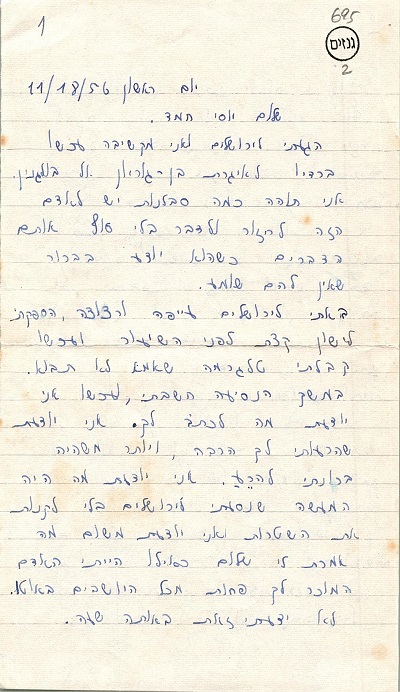 1
695
גנזים
2
יום ראשון 11/18/56
שלום יוסי חמד.
הגעתי לירושלים ואני מקשיבה עכשו
ברדיו לאיגרת בן-גוריון אל בולגנין.
אני תוהה כמה סבלנות יש לאדם
הזה לחזור ולדבר בלי סוף אותם
הדברים כשהוא יודע בברור
שאין להם שומע.
באתי לירושלים עייפה ורצוצה, הספקתי
לישון קצת לפני השיעור ועכשו
קבלתי טלגרמה שאמא לא תבוא.
במשך הנסיעה חשבתי, ועכשו אני
יודעת מה לכתב לך. אני יודעת
שהרעותי לך הרבה, ויותר משהיה
בכוונתי להרע. אני יודעת מה היה
המעשה שנסעתי לירושלים בלי לקנות
את השטרות ואני יודעת משום מה
אמרת לי שלום כאילו הייתי האדם
המוכר לך פחות מכל היושבים באוטו.
לא ידעתי זאת באותה שעה.